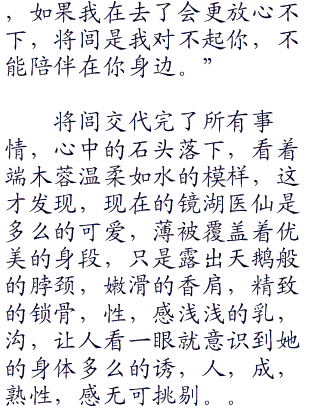 ，如果我在去了会更放心不
下，将闾是我对不起你，不
能陪伴在你身边。”
将闾交代完了所有事
情，心中的石头落下，看着
端木蓉温柔如水的模样，这
才发现，现在的镜湖医仙是
多么的可爱，薄被覆盖着优
美的身段，只是露出天鹅般
的脖颈，嫩滑的香肩，精致
的锁骨，性，感浅浅的乳，
沟，让人看一眼就意识到她
的身体多么的诱，人，成，
熟性，感无可挑剔。。